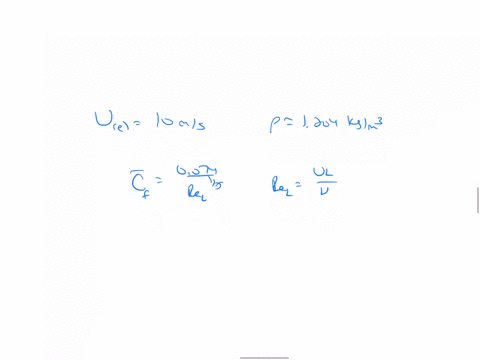 U_rel = 10 m/s
ρ = 1.204 kg/m³
C̄_f = 0.074 / Re_L^(1/5)
Re_L = UL / ν